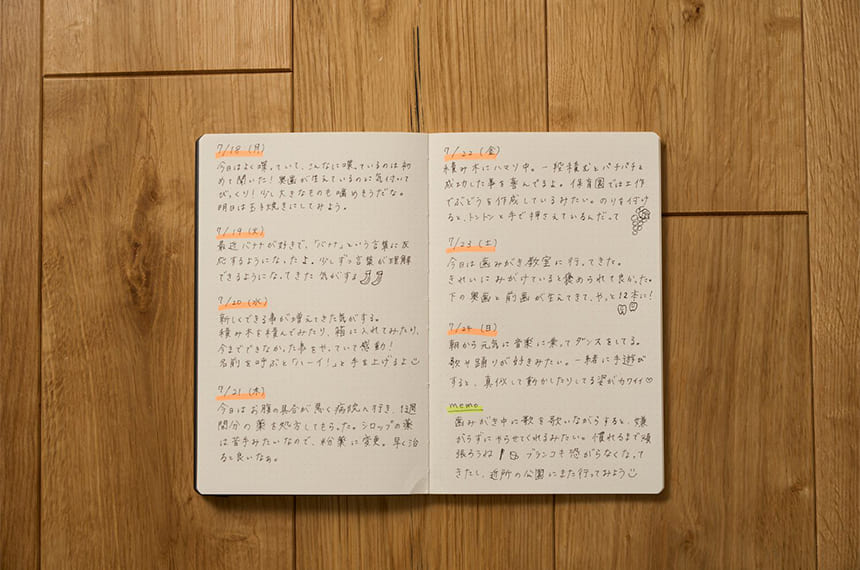 7/18 (月)
今日はよく喋っていて、こんなに喋っているのは初
めて聞いた！奥歯が生えているのに気付いて
びっくり！少し大きなものも噛めそうだな。
明日は玉子焼きにしてみよう。
7/19 (火)
最近バナナが好きで、「バナナ」という言葉に反
応するようになったよ。少しずつ言葉が理解
できるようになってきた気がする
7/20 (水)
新しくできる事が増えてきた気がする。
積み木を積んでみたり、箱に入れてみたり、
今までできなかった事をやっていて感動！
名前を呼ぶと「ハーイ！」と手を上げるよ
7/21 (木)
今日はお腹の具合が悪く病院へ行き、1週
間分の薬を処方してもらった。シロップの薬
は苦手みたいなので、粉薬に変更。早く治
ると良いなぁ。
7/22 (金)
積み木にハマリ中。一段積むとパチパチと
成功した事を喜んでるよ。保育園では工作
でぶどうを作成しているみたい。のりを付け
ると、トントンと手で押さえているんだって
7/23 (土)
今日は歯みがき教室に行ってきた。
きれいにみがけていると褒められて良かった。
下の奥歯と前歯が生えてきて、やっと12本に！
7/24 (日)
朝から元気に音楽に乗ってダンスをしてる。
歌や踊りが好きみたい。一緒に手遊び
すると、真似して動かしたりしてる姿がカワイイ♡
memo
歯みがき中に歌を歌いながらすると、嫌
がらずにやらせてくれるみたい。慣れるまで頑
張ろうね ブランコも恐がらなくなって
きたし、近所の公園にまた行ってみよう